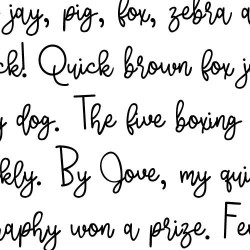 jay, pig, fox, zebra a
ck! Quick brown fox j
y dog. The five boxing
kly. By Jove, my qui
raphy won a prize. Fe